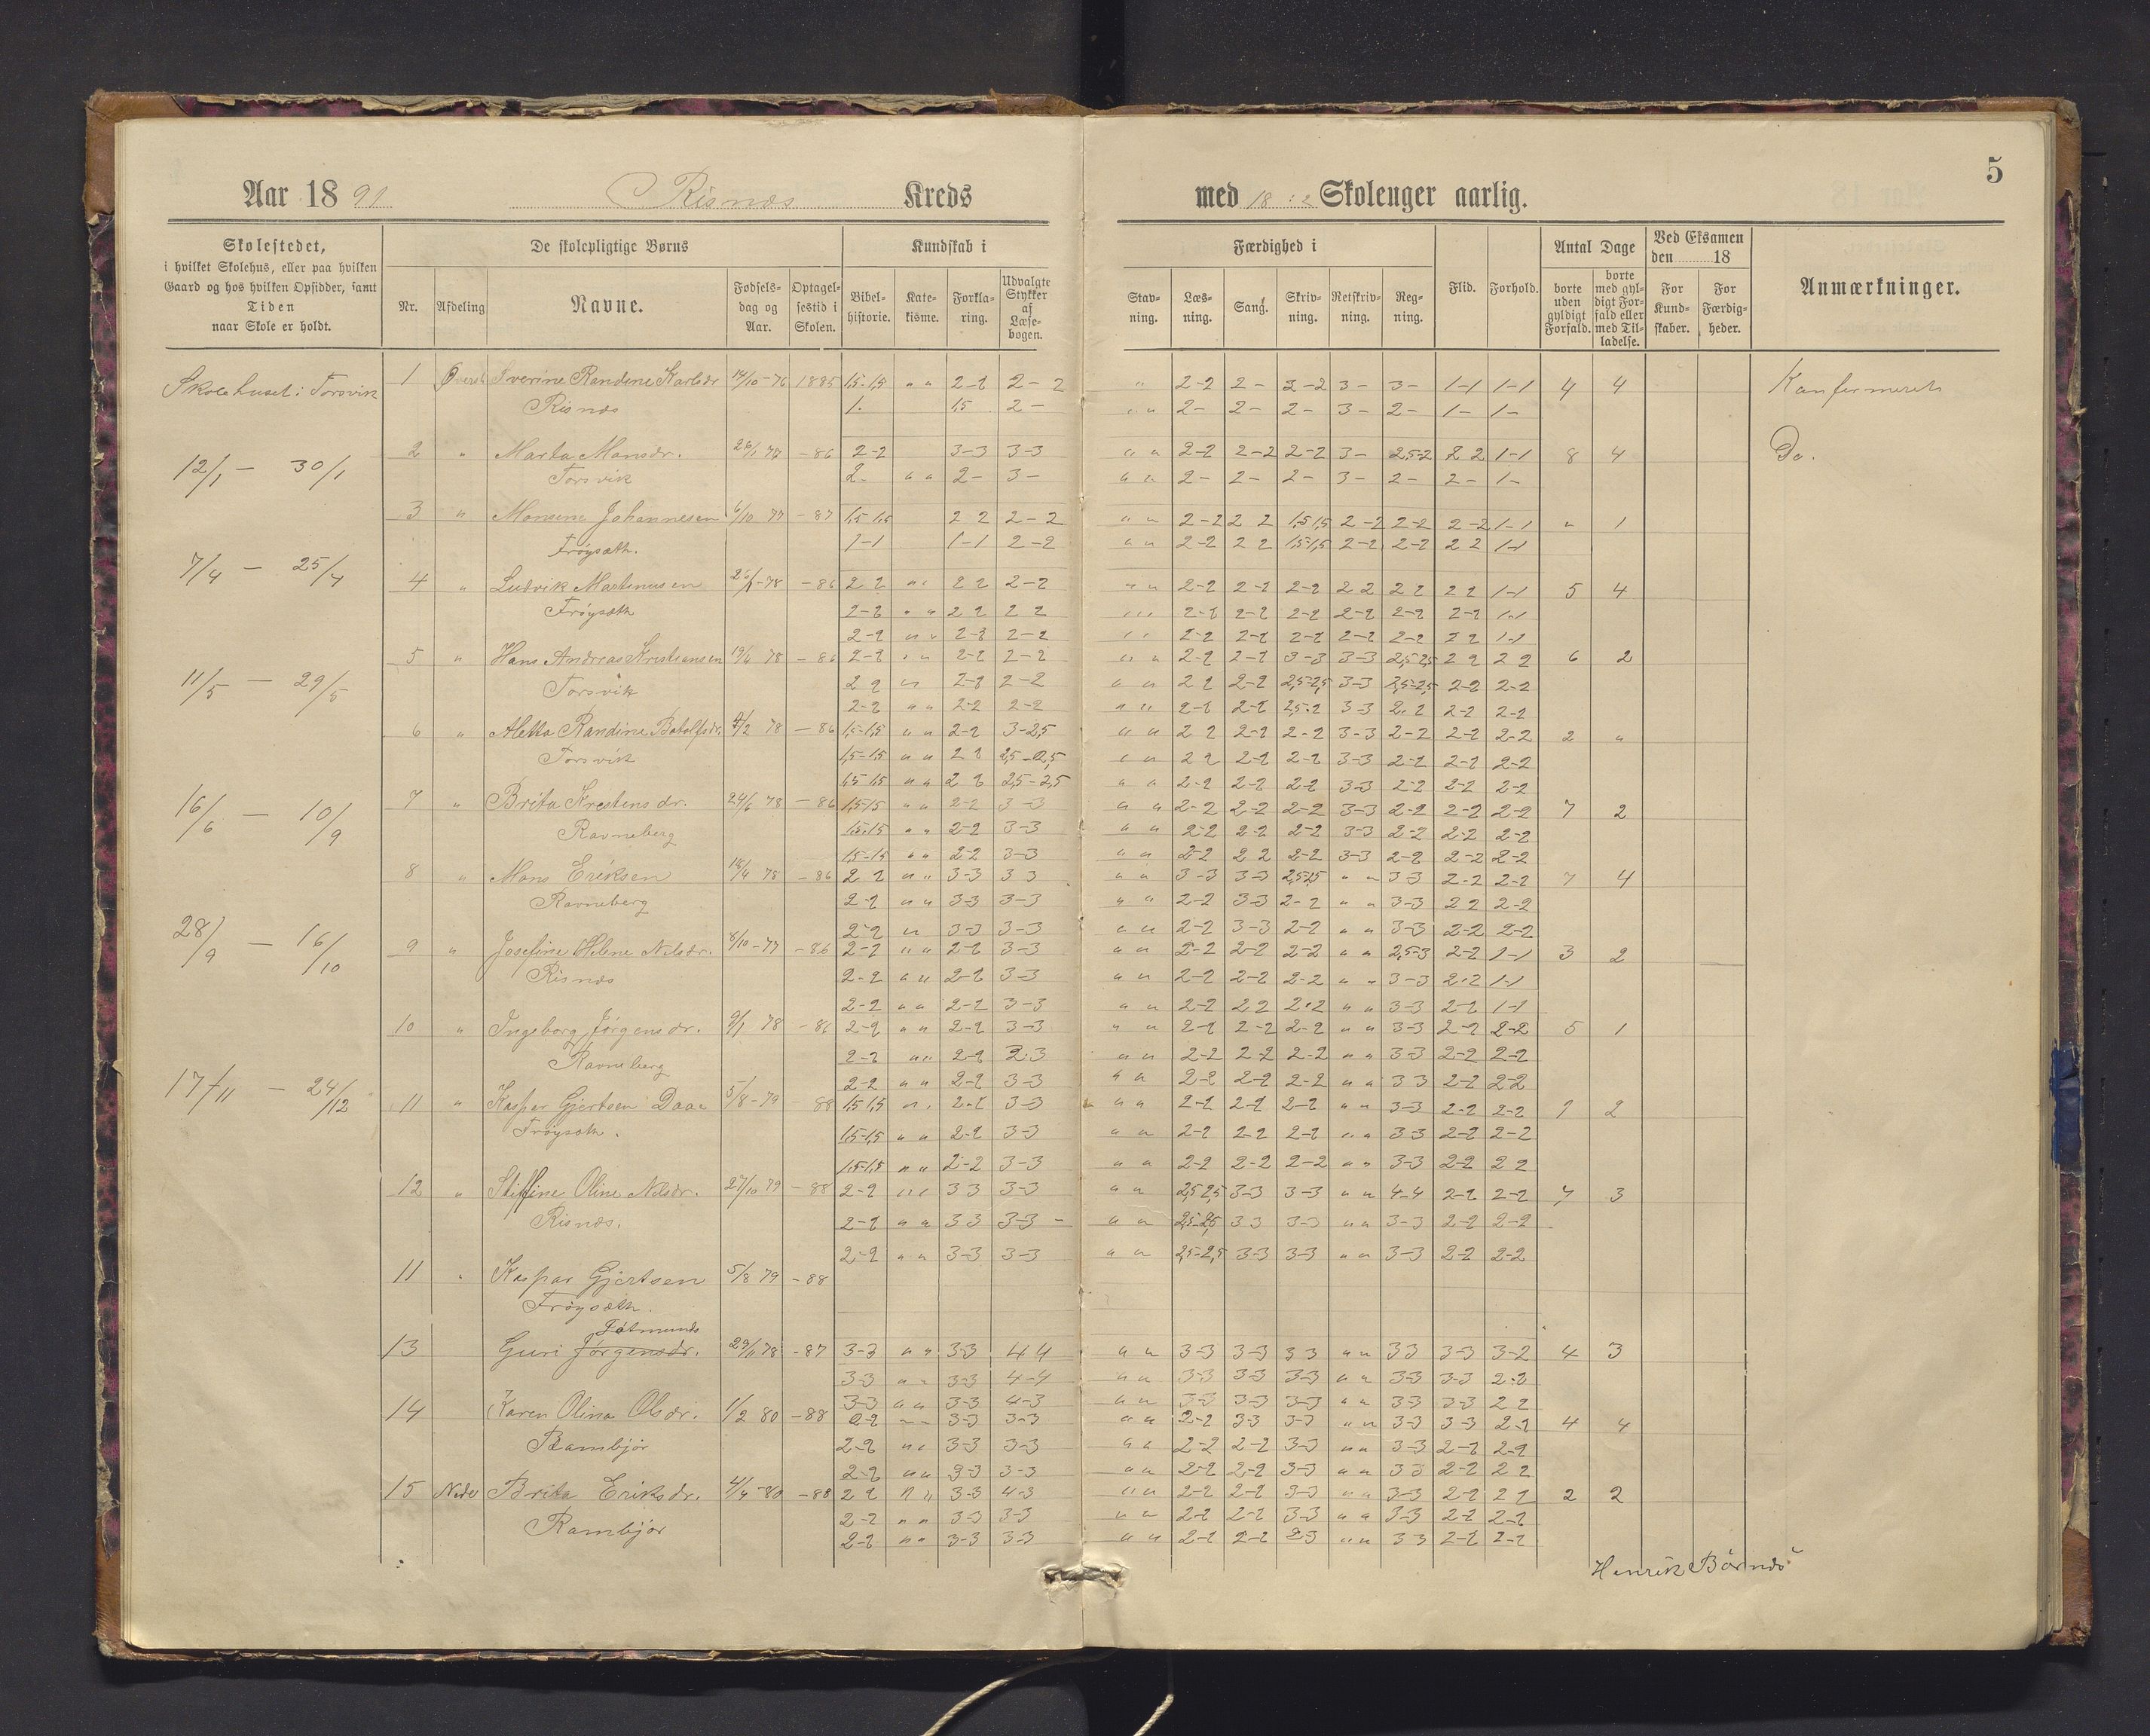 5
Aar 18 91 Risnes Kreds med 18 : 2 Skoleuger aarlig.
Skolestedet, i hvilket Skolehus, eller paa hvilken Gaard og hos hvilken Opsidder, samt Tiden naar Skole er holdt.
De skolepligtige Børns
Nr. Afdeling Navne. Fødselsdag og Aar. Optagelsestid i Skolen.
Kundskab i
Bibelhistorie. Katekisme. Forklaring. Udvalgte Stykker af Læsebogen.
Færdighed i
Stavning. Læsning. Sang. Skrivning. Retskrivning. Regning.
Flid. Forhold.
Antal Dage
borte uden gyldigt Forfald. borte med gyldigt Forfald eller med Tilladelse.
Ved Eksamen den 18
For Kundskaber. For Færdigheder.
Anmærkninger.
Skolehuset i Torsvik
12/1 — 30/1
7/4 — 25/4
11/5 — 29/5
16/6 — 10/9
28/9 — 16/10
17/11 — 24/12
1 Iverine Randine Karlsdr 14/10-76 1885 1,5-1,5 " " 2-2 2-2 " 2-2 2- 2-2 3- 3- 1-1 1-1 4 4 Konfirmeret
Risnes 1- 1,5 2- " " 2- 2- 2- 3- 2- 1- 1-
2 " Marta Monsdr. 26/1 77 -86 2-2 3-3 3-3 " " 2-2 2-2 2-2 3- 2,5-2 2 2 1-1 8 4 Do.
Torsvik 2- " " 2- 3- " " 2- 2- 2- 3- 2- 2- 1-
3 " Monsine Johannesen 6/10 77 -87 1,5-1,5 2 2 2-2 " " 2-2 2 2 1,5 1,5 2-2 2-2 2-2 1-1 " 1
Frøysæth. 1-1 1-1 2-2 " " 2-2 2 2 1,5-1,5 2-2 2-2 2 2 1-1
4 " Ludvik Martinusen -78 -86 2 2 " " 2 2 2-2 " " 2-2 2-2 2-2 2 2 2 2 2 2 1-1 5 4
Frøysæth 2-2 " " 2 2 2 2 " " 2-2 2-2 2-2 2-2 2-2 2-2 1-1
2-2 " " 2-2 2-2 " " 2-2 2-2 2-2 2-2 2-2 2 2 1-1
5 " Hans Andreas Kristiansen 19/4 78 -86 2-2 " " 2-2 2-2 " " 2-2 2-2 3-3 3-3 2,5-2,5 2 2 2 2 6 2
Torsvik 2 2 " 2-2 2-2 " " 2 2 2-2 2,5-2,5 3-3 2,5-2,5 2-2 2-2
2-2 " " 2-2 2-2 " " 2-2 2-2 2,5-2 3-3 2-2 2-2 2-2
6 " Aletta Randine Botolfsdr. 78 -86 1,5-1,5 " " 2-2 3-2,5 " " 2 2 2-2 2-2 3-3 2-2 2-2 2-2 2 "
Torsvik 1,5-1,5 " " 2 2 2,5-2,5 " " 2 2 2-2 2-2 3-3 2-2 2-2 2-2
1,5 1,5 " " 2 2 2,5-2,5 " " 2-2 2-2 2-2 3-3 2-2 2-2 2-2
7 " Brita Krestensdr. 24/6 78 -86 1,5-1,5 " " 2-2 3-3 " " 2-2 2-2 2-2 3-3 2-2 2-2 2-2 7 2
Ravneberg 1,5-1,5 " " 2-2 3-3 " " 2-2 2-2 2-2 3-3 2-2 2-2 2-2
1,5-1,5 " " 2-2 3-3 " " 2-2 2 2 2-2 3-3 2-2 2-2 2-2
8 " Mons Eriksen 78 -86 2 2 " " 3-3 3 3 " " 3-3 3-3 2,5-2,5 " " 3-3 2-2 2-2 7 4
Ravneberg 2-2 " " 3-3 3-3 " " 2-2 3-3 2-2 " " 3-3 2 2 2-2
2-2 " 3-3 3-3 " " 2-2 3-3 2-2 " " 3-3 2-2 2-2
9 " Josefine Helene Nilsdr. 8/10-77 -86 2-2 " " 2-2 3-3 " " 2-2 2-2 2-2 " " 2,5-3 2-2 1-1 3 2
Risnes 2-2 " " 2-2 3-3 " " 2-2 2-2 2-2 " " 3-3 2-2 1-1
2-2 " " 2-2 3-3 " " 2-2 2 2 2-2 " " 3-3 2-2 1-1
10 " Ingeborg Jørgensdr. 9/1 78 -86 2-2 " " 2-2 3-3 " " 2-2 2-2 2-2 " " 3-3 2-2 2-2 5 1
Ravneberg 2-2 " " 2-2 2-3 " " 2-2 2-2 2-2 " " 3-3 2-2 2-2
2-2 " " 2-2 3-3 " " 2-2 2-2 2-2 " " 3 3 2-2 2-2
11 " Kaspar Gjertsen Daae 5/8-79 -88 1,5 1,5 " " 2-2 3-3 " " 2-2 2-2 2-2 " " 3-3 2-2 2-2 1 2
Frøysæth. 1,5-1,5 " " 2-2 3-3 " " 2-2 2-2 2-2 " " 3-3 2-2 2-2
1,5-1,5 " " 2-2 3-3 " " 2-2 2-2 2-2 " " 3-3 2-2 2 2
12 " Stiffine Oline Nilsdr. 27/10 79 -88 2-2 " " 3 3 3-3 " " 2,5 2,5 3-3 3-3 " " 4-4 2-2 2-2 7 3
Risnes. 2-2 " " 3 3 3-3 - " " 2,5-2,5 3 3 3-3 " " 3-3 2-2 2-2
2-2 " " 3-3 3-3 " " 2,5-2,5 3-3 3-3 " " 3-3 2-2 2-2
11 " Kaspar Gjertsen 5/8 79 -88
Frøysæth.
Totmunds
13 Guri Jørgensdr. 29/11 78 -87 3-3 " " 3-3 4 4 " " 3-3 3-3 3 3 " " 3 3 3-3 3-2 4 3
3-3 " " 3-3 4-4 " " 3-3 3-3 3-3 " " 3-3 3-3 2-2
3-3 " " 3-3 4-3 " " 3-3 3-3 3-3 " " 3-3 3-3 2 2
14 Karen Olina Olsdr. 1/2 80 -88 2-2 " " 3-3 3-3 " " 2-2 3-3 3-3 " " 3-3 3-3 2-2 4 4
Rambjør 2-2 " " 3-3 3-3 " " 2-2 2-2 3-3 " " 3-3 2-2 2-2
2-2 " " 3-3 3-3 " " 2-2 2-2 3-3 " " 3 3 2-2 2 2
15 Neder Brita Eriksdr. 4/4-80 -88 2 2 " " 3-3 4-3 " " 2-2 2-2 3-3 " " 3-3 2-2 2 2 2 2
Rambjør 2-2 " " 3-3 3-3 " " 2-2 2-2 3-3 " " 3-3 2-2 2-2
2-2 " " 3-3 3-3 " " 2-2 2-2 " " 3 3 2-2 2-2
Henrik Børnes